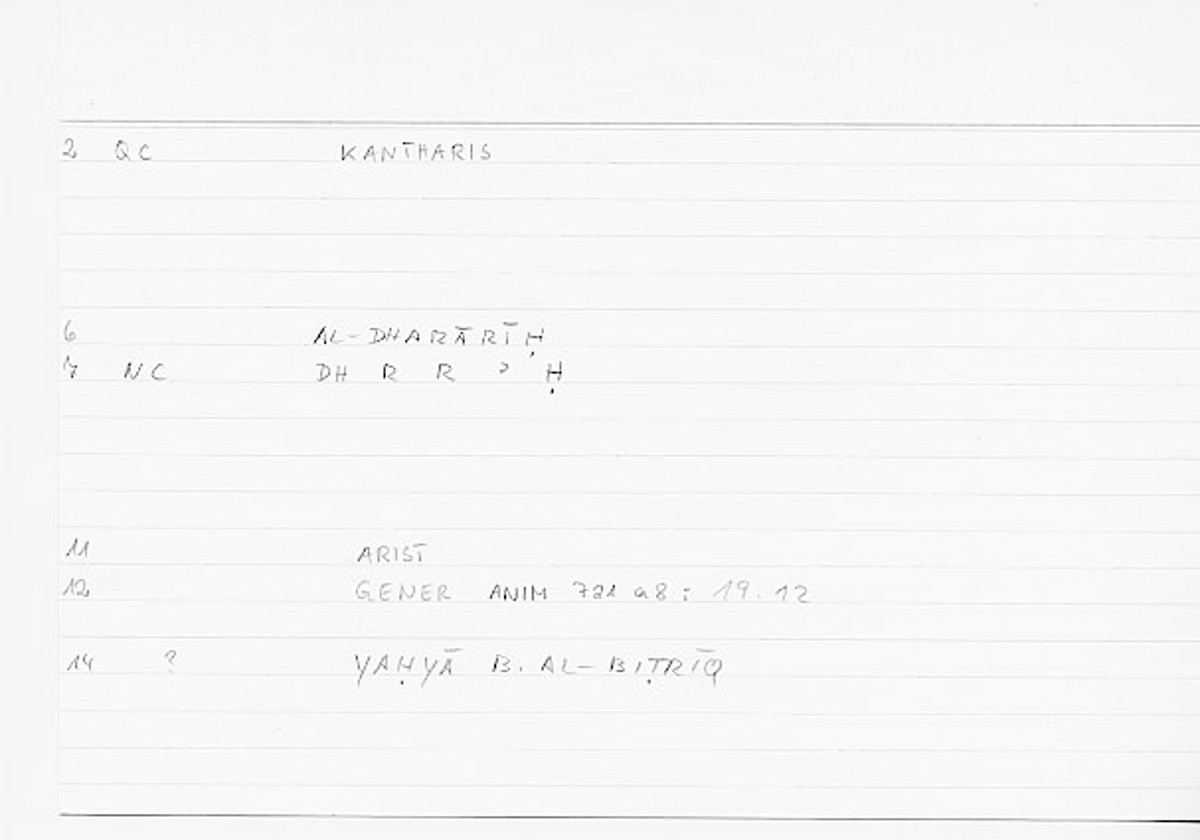 2 QC KANTHARIS
6 AL-DHARĀRĪḤ
7 NC DH R R ʾ Ḥ
11 ARIST
12 GENER ANIM 721 a8 : 19.12
14 ? YAḤYĀ B. AL-BIṬRĪQ